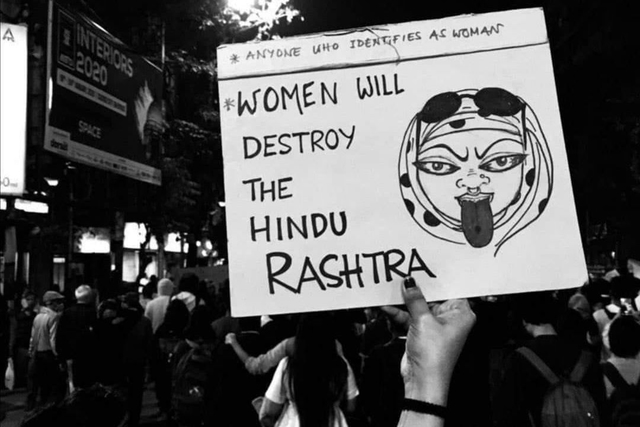 A
INTERIORS
2020
SPACE
* ANYONE WHO IDENTIFIES AS WOMAN
*WOMEN WILL
DESTROY
THE
HINDU
RASHTRA